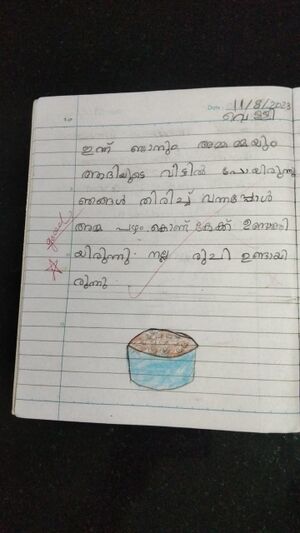 Date: 11/8/2023
വെള്ളി
ഇന്ന് ഞാനും അമ്മമ്മയും
ആദിയുടെ വീട്ടിൽ പോയിരുന്നു
ഞങ്ങൾ തിരിച്ച് വന്നപ്പോൾ
അമ്മ പഴം കൊണ്ട് കേക്ക് ഉണ്ടാക്കി
യിരുന്നു. നല്ല രുചി ഉണ്ടായി
രുന്നു.
good